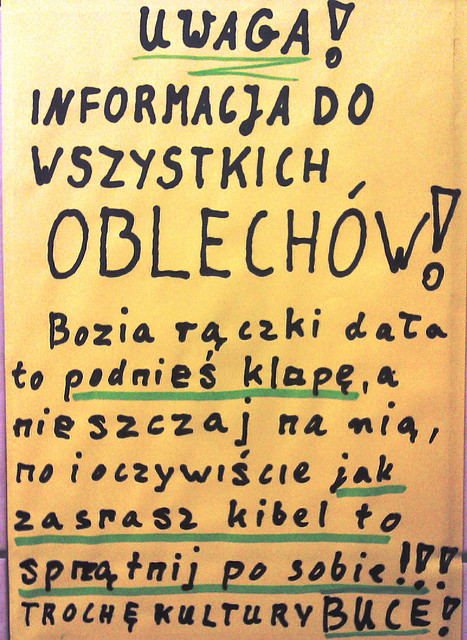 UWAGA!
INFORMACJA DO
WSZYSTKICH
OBLECHÓW!
Bozia rączki dała
to podnieś klapę, a
nie szczaj na nią,
no i oczywiście jak
zasrasz kibel to
sprzątnij po sobie!!!
TROCHĘ KULTURY BUCE!